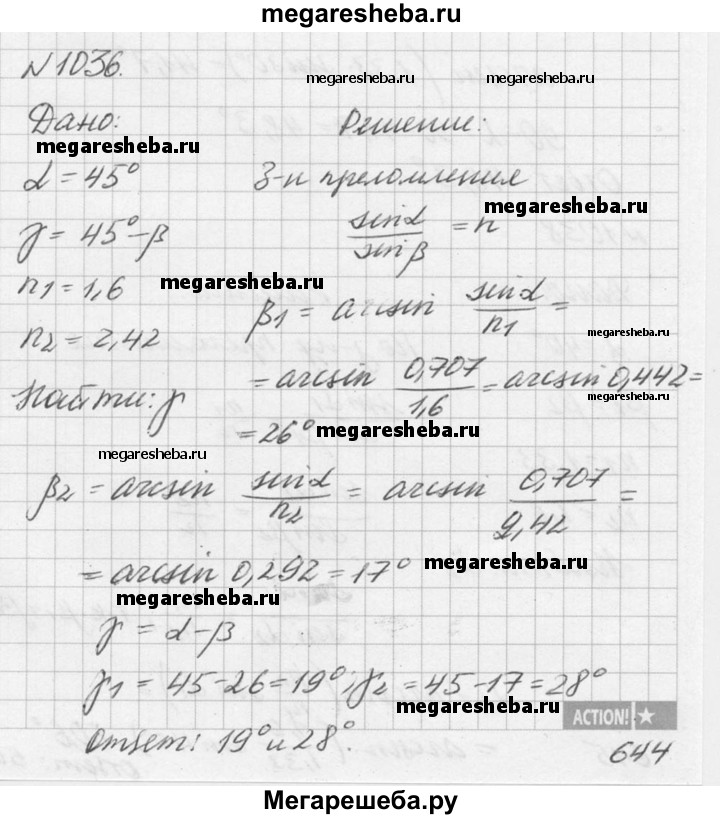 megaresheba.ru
№1036.
megaresheba.ru
megaresheba.ru
Дано: Решение:
megaresheba.ru
α = 45° З-н преломления
megaresheba.ru
γ = 45° - β sinα / sinβ = n
n1 = 1,6 megaresheba.ru
β1 = arcsin sinα / n1 =
megaresheba.ru
n2 = 2,42
Найти: γ = arcsin 0,707 / 1,6 = arcsin 0,442 =
megaresheba.ru
= 26° megaresheba.ru
megaresheba.ru
β2 = arcsin sinα / n2 = arcsin 0,707 / 2,42 =
= arcsin 0,292 = 17° megaresheba.ru
megaresheba.ru
γ = α - β
γ1 = 45 - 26 = 19°; γ2 = 45 - 17 = 28°
megaresheba.ru
ACTION!
Ответ: 19° и 28°.
644
Мегарешеба.ру